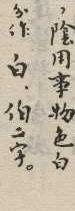 ，陰用事物色白
分作白，伯二字。